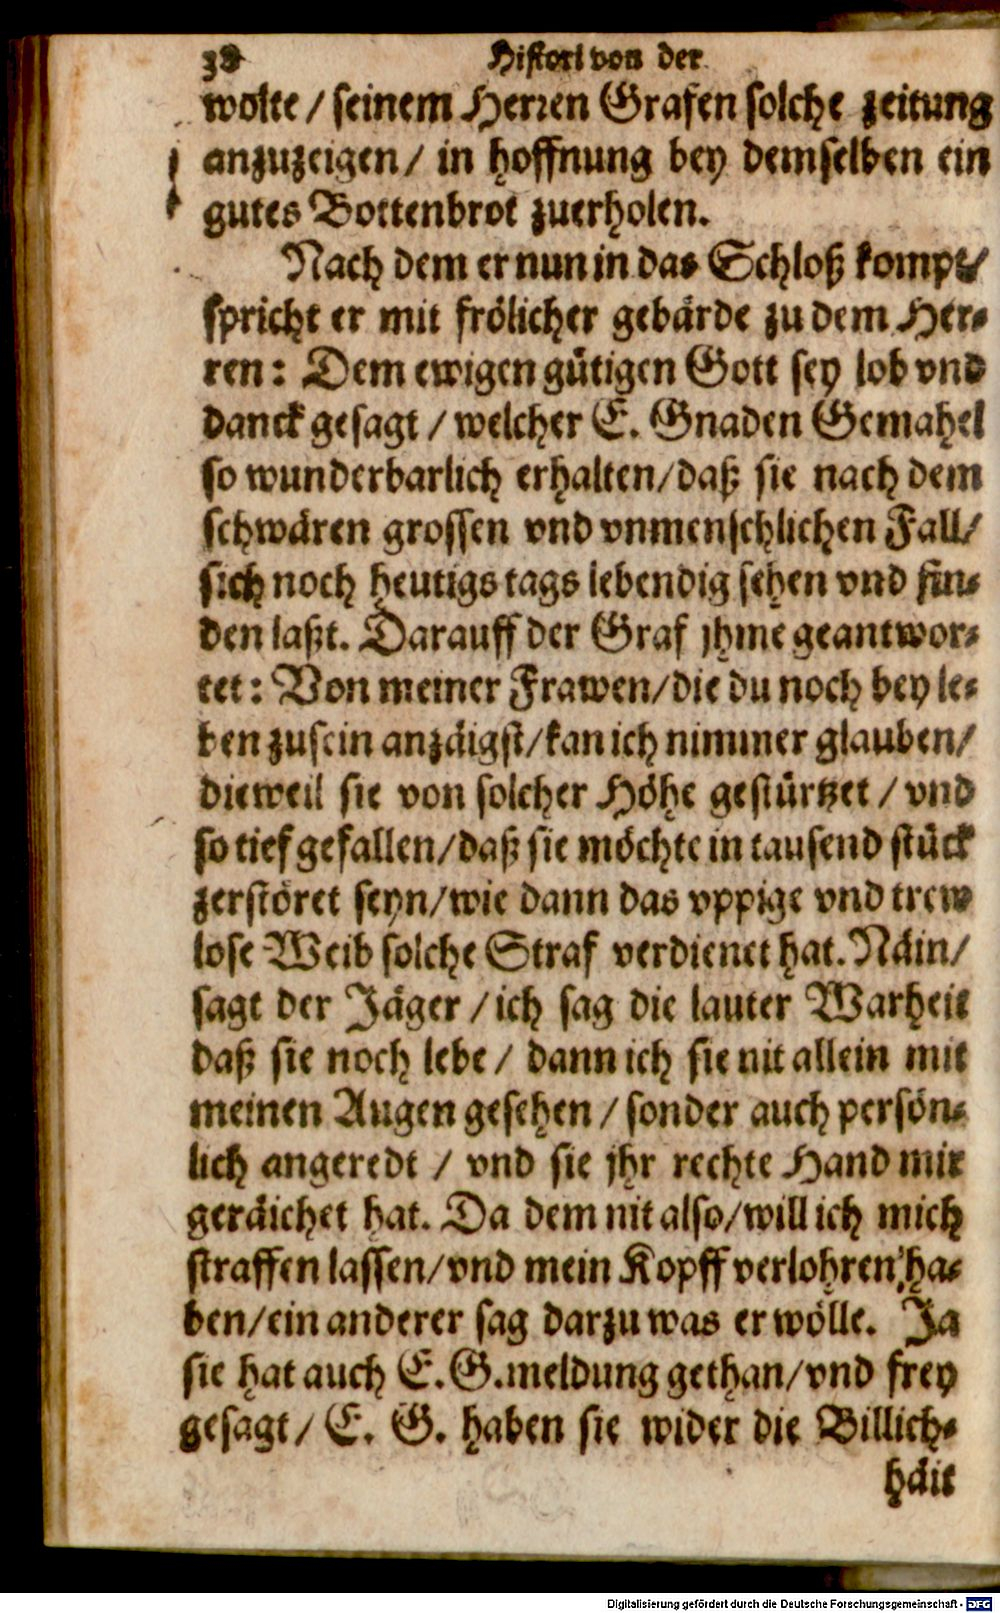 38 Histori von der
wolte / seinem Herren Grafen solche zeitung
anzuzeigen / in hoffnung bey demselben ein
gutes Bottenbrot zuerholen.
Nach dem er nun in das Schloß kompt /
spricht er mit frölicher gebärde zu dem Her-
ren: Dem ewigen gütigen Gott sey lob vnd
danck gesagt / welcher E. Gnaden Gemahel
so wunderbarlich erhalten / daß sie nach dem
schwären grossen vnd vnmenschlichen Fall /
sich noch heutigs tags lebendig sehen vnd fin-
den laßt. Darauff der Graf jhme geantwor-
tet: Von meiner Frawen / die du noch bey le-
ben zusein anzäigst / kan ich nimmer glauben /
dieweil sie von solcher Höhe gestürtzet / vnd
so tief gefallen / daß sie möchte in tausend stück
zerstöret seyn / wie dann das vppige vnd trew
lose Weib solche Straf verdienet hat. Näin /
sagt der Jäger / ich sag die lauter Warheit
daß sie noch lebe / dann ich sie nit allein mit
meinen Augen gesehen / sonder auch persön-
lich angeredt / vnd sie jhr rechte Hand mir
geräichet hat. Da dem nit also / will ich mich
straffen lassen / vnd mein Kopff verlohren ha-
ben / ein anderer sag darzu was er wölle. Ja
sie hat auch E. G. meldung gethan / vnd frey
gesagt / E. G. haben sie wider die Billich-
häit
Digitalisierung gefördert durch die Deutsche Forschungsgemeinschaft - DFG